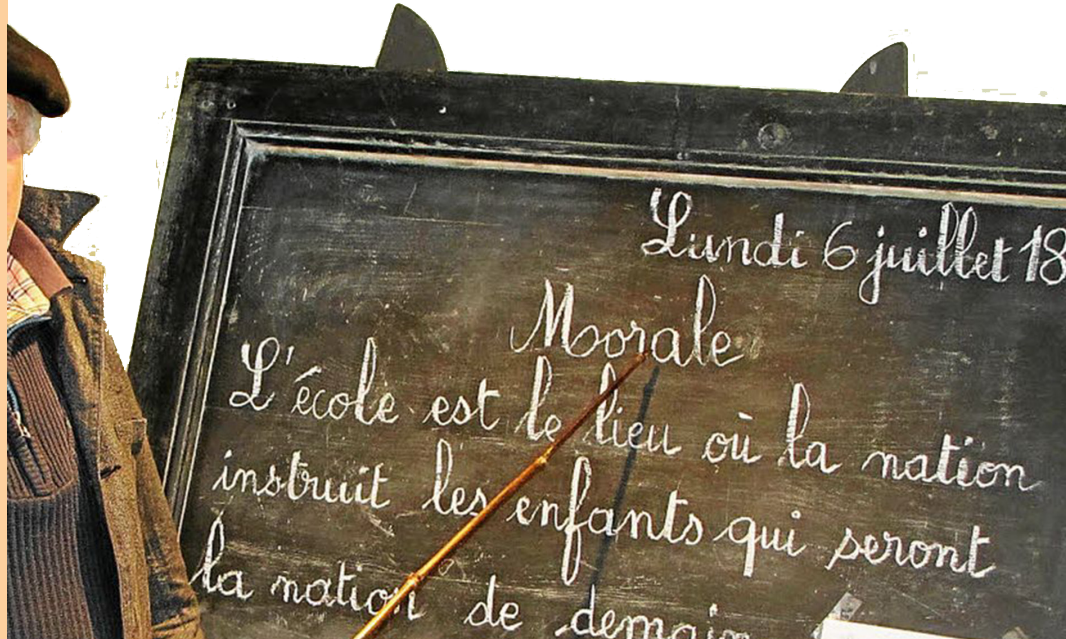 Lundi 6 juillet 18
Morale
L'école est le lieu où la nation
instruit les enfants qui seront
la nation de demain